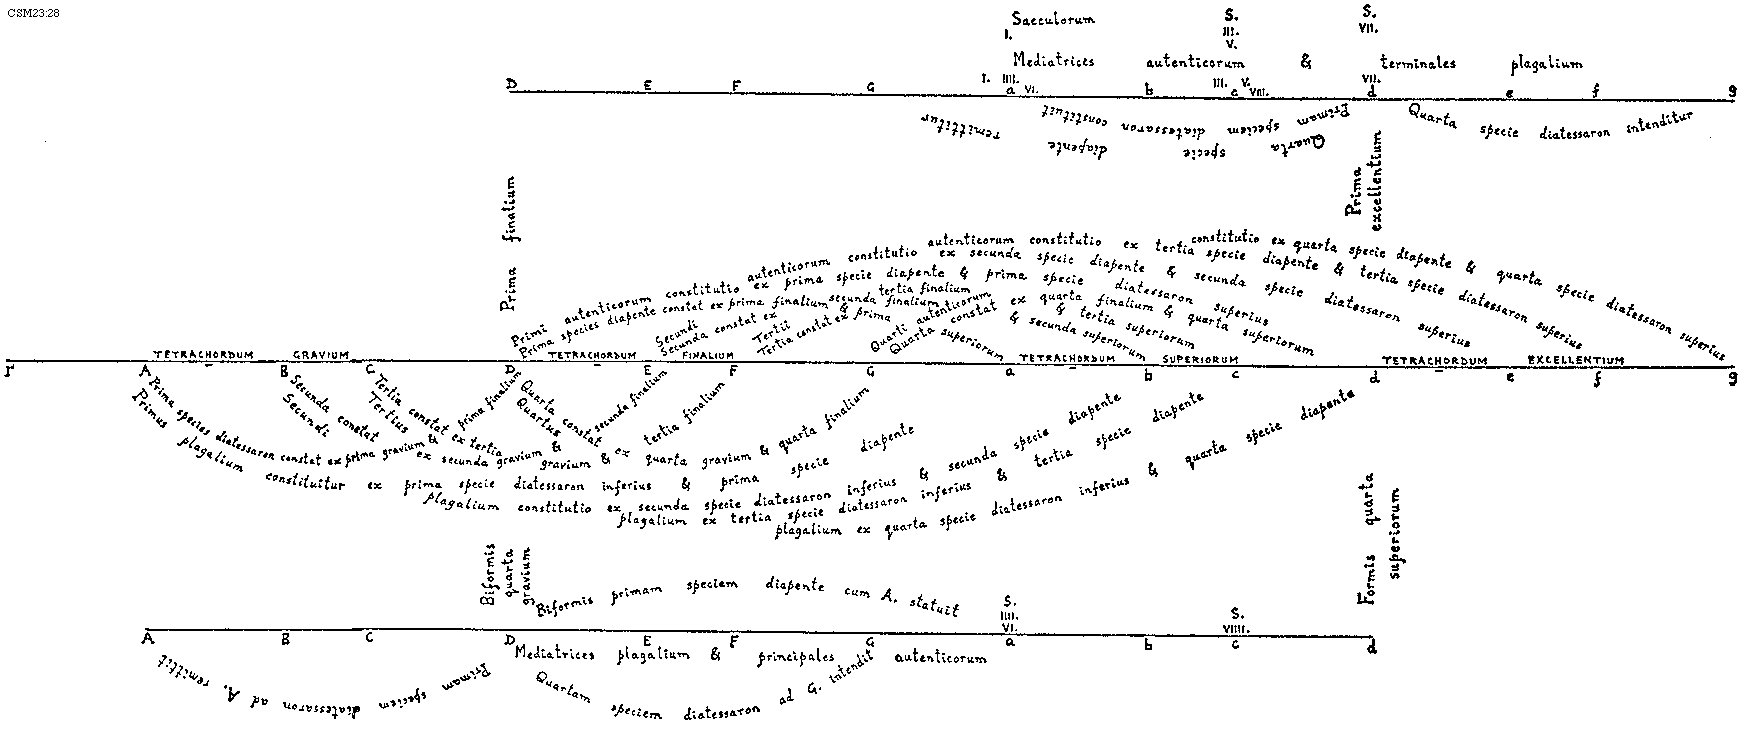 CSM23:28
Saeculorum S. S.
I. III. VII.
V.
Mediatrices autenticorum & terminales plagalium
I. IIII. VI. III. V. VIII. VII.
D E F G a b c d e f g
Primam speciem diatessaron constituit
Quarta specie diapente remittitur
Quarta specie diatessaron intenditur
Prima finalium
Prima excellentium
Primi autenticorum constitutio ex prima specie diapente & prima specie diatessaron superius
Prima species diapente constat ex prima finalium & prima superiorum
Secundi autenticorum constitutio ex secunda specie diapente & secunda specie diatessaron superius
Secunda constat ex secunda finalium & secunda superiorum
Tertii autenticorum constitutio ex tertia specie diapente & tertia specie diatessaron superius
Tertia constat ex tertia finalium & tertia superiorum
Quarti autenticorum constitutio ex quarta specie diapente & quarta specie diatessaron superius
Quarta constat ex quarta finalium & quarta superiorum
TETRACHORDUM GRAVIUM TETRACHORDUM FINALIUM TETRACHORDUM SUPERIORUM TETRACHORDUM EXCELLENTIUM
Γ A B C D E F G a b c d e f g
Prima species diatessaron constat ex prima gravium & prima finalium
Primus plagalium constituitur ex prima specie diatessaron inferius & prima specie diapente
Secunda constat ex secunda gravium & secunda finalium
Secundi plagalium constitutio ex secunda specie diatessaron inferius & secunda specie diapente
Tertia constat ex tertia gravium & tertia finalium
Tertius plagalium ex tertia specie diatessaron inferius & tertia specie diapente
Quarta constat ex quarta gravium & quarta finalium
Quartus plagalium ex quarta specie diatessaron inferius & quarta specie diapente
Biformis quarta gravium
Formis quarta superiorum
Biformis primam speciem diapente cum A. statuit
S. S.
IIII. VIIII.
VI.
A B C D E F G a b c d
Mediatrices plagalium & principales autenticorum
Primam speciem diatessaron ad A. remittit
Quartam speciem diatessaron ad G. intendit